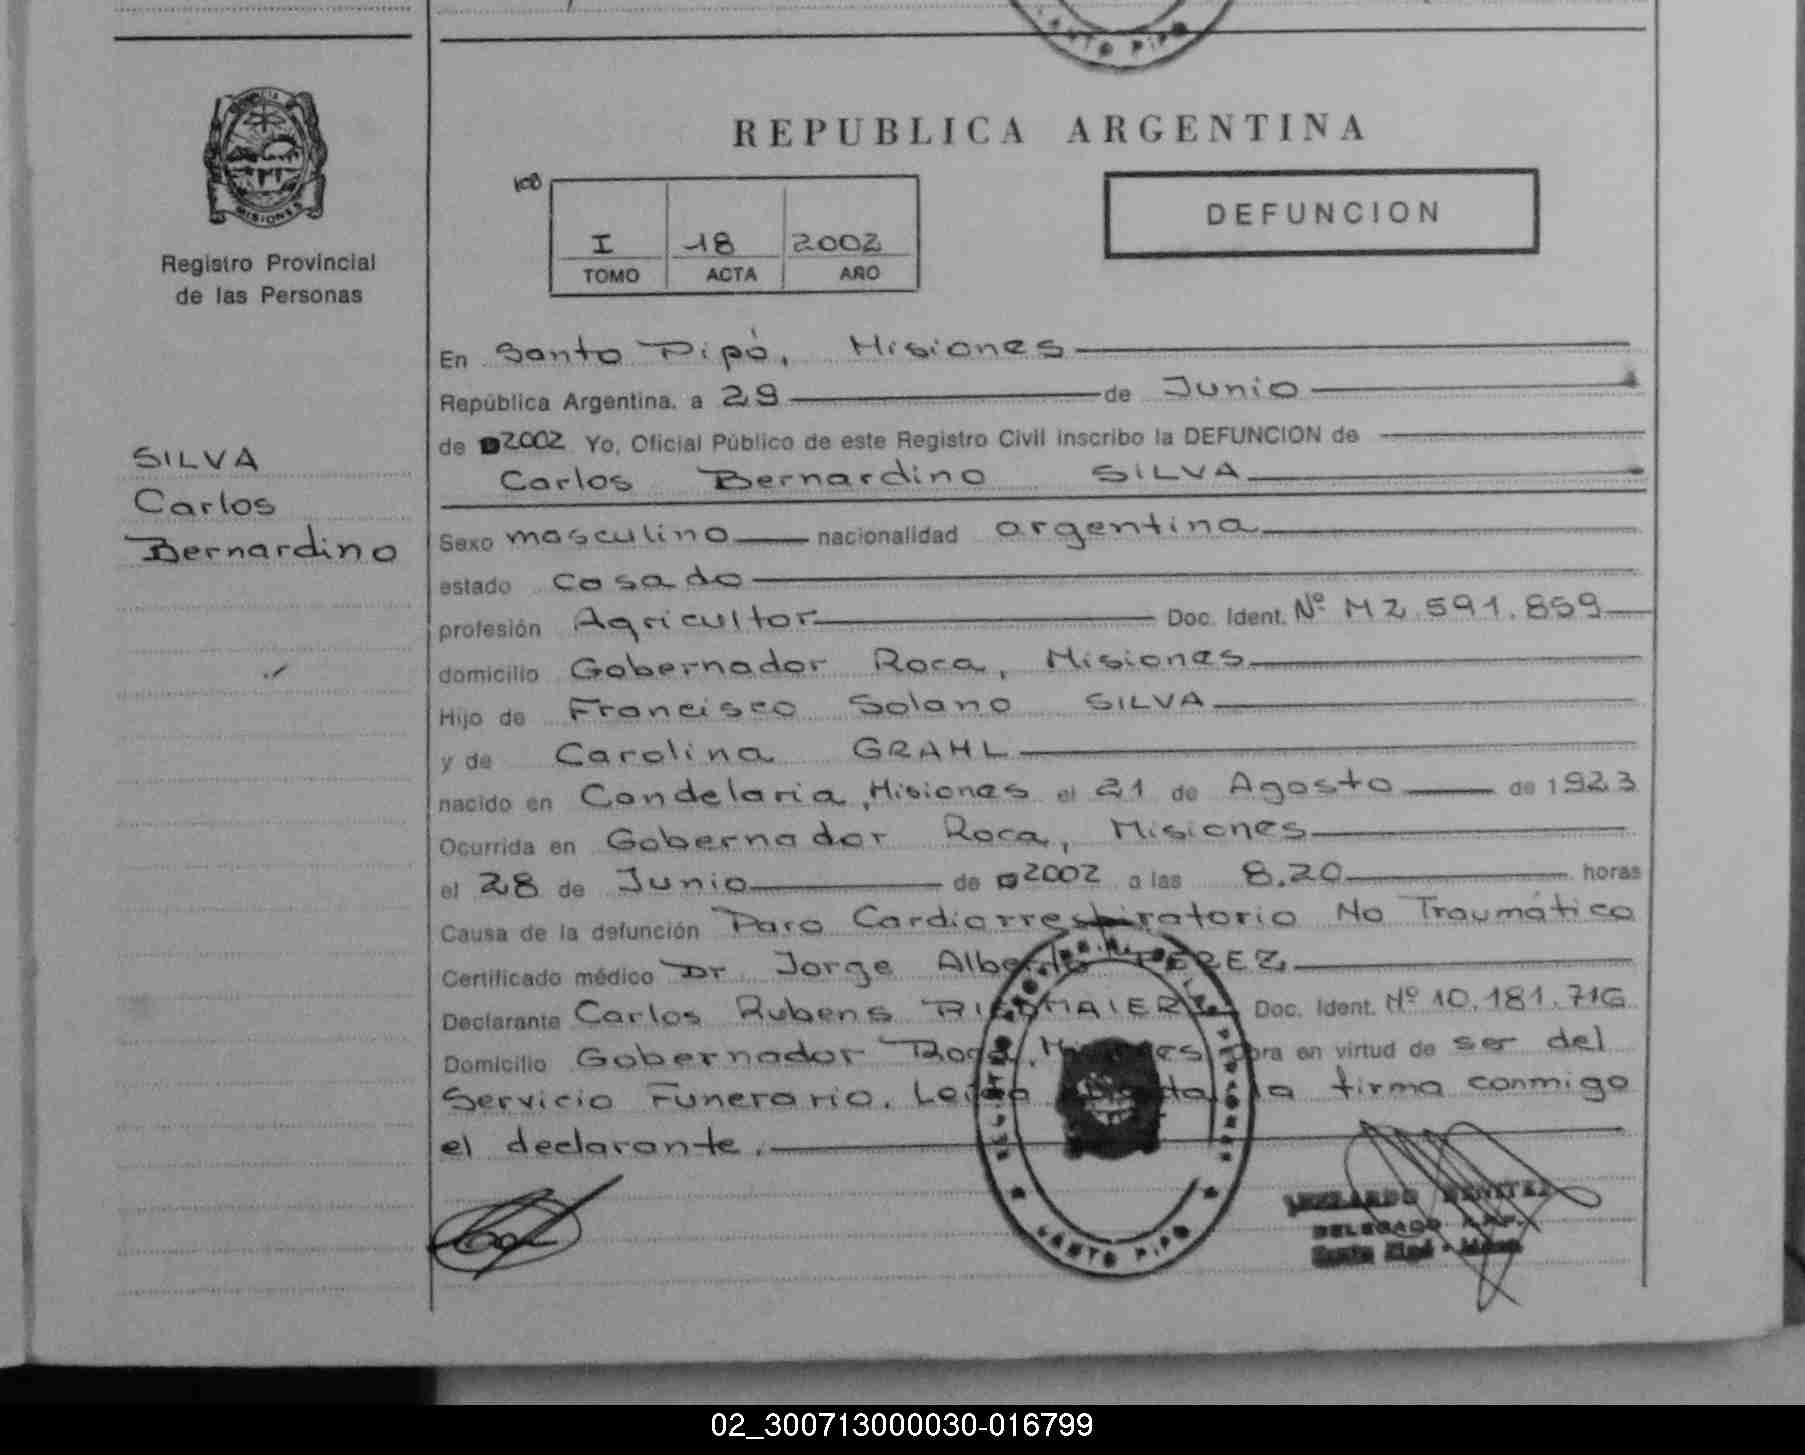 SANTO PIPO
MISIONES
Registro Provincial
de las Personas
SILVA
Carlos
Bernardino
REPUBLICA ARGENTINA
108
I 18 2002
TOMO ACTA AÑO
DEFUNCION
En Santo Pipó, Misiones
República Argentina, a 29 de Junio
de 2002 Yo, Oficial Público de este Registro Civil inscribo la DEFUNCION de
Carlos Bernardino SILVA
Sexo masculino nacionalidad argentina
estado casado
profesión Agricultor Doc. Ident. Nº M 2.591.859
domicilio Gobernador Roca, Misiones
Hijo de Francisco Solano SILVA
y de Carolina GRAHL
nacido en Candelaria, Misiones el 21 de Agosto de 1923
Ocurrida en Gobernador Roca, Misiones
el 28 de Junio de 2002 a las 8.20 horas
Causa de la defunción Paro Cardiorrespiratorio No Traumático
Certificado médico Dr Jorge Alberto PEREZ
Declarante Carlos Rubens Doc. Ident. Nº 10.181.716
Domicilio Gobernador Roca, Misiones obra en virtud de ser del
Servicio Funerario. Leida el acta, la firma conmigo
el declarante.
SANTO PIPO
BENITEZ
DELEGADO
Santo Pipó
02_300713000030-016799